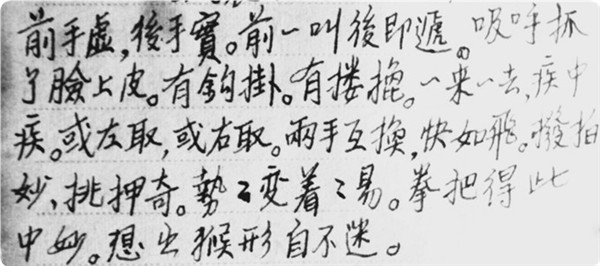 前手虚,後手實。前一叫後即遞。吸呼抓
了臉上皮。有鈎掛。有摟挽。一来一去,疾中
疾。或左取,或右取。兩手互換,快如飛。撥拍
妙、挑押奇。勢〻变着〻易。拳把得此
中妙。想出猴形自不迷。